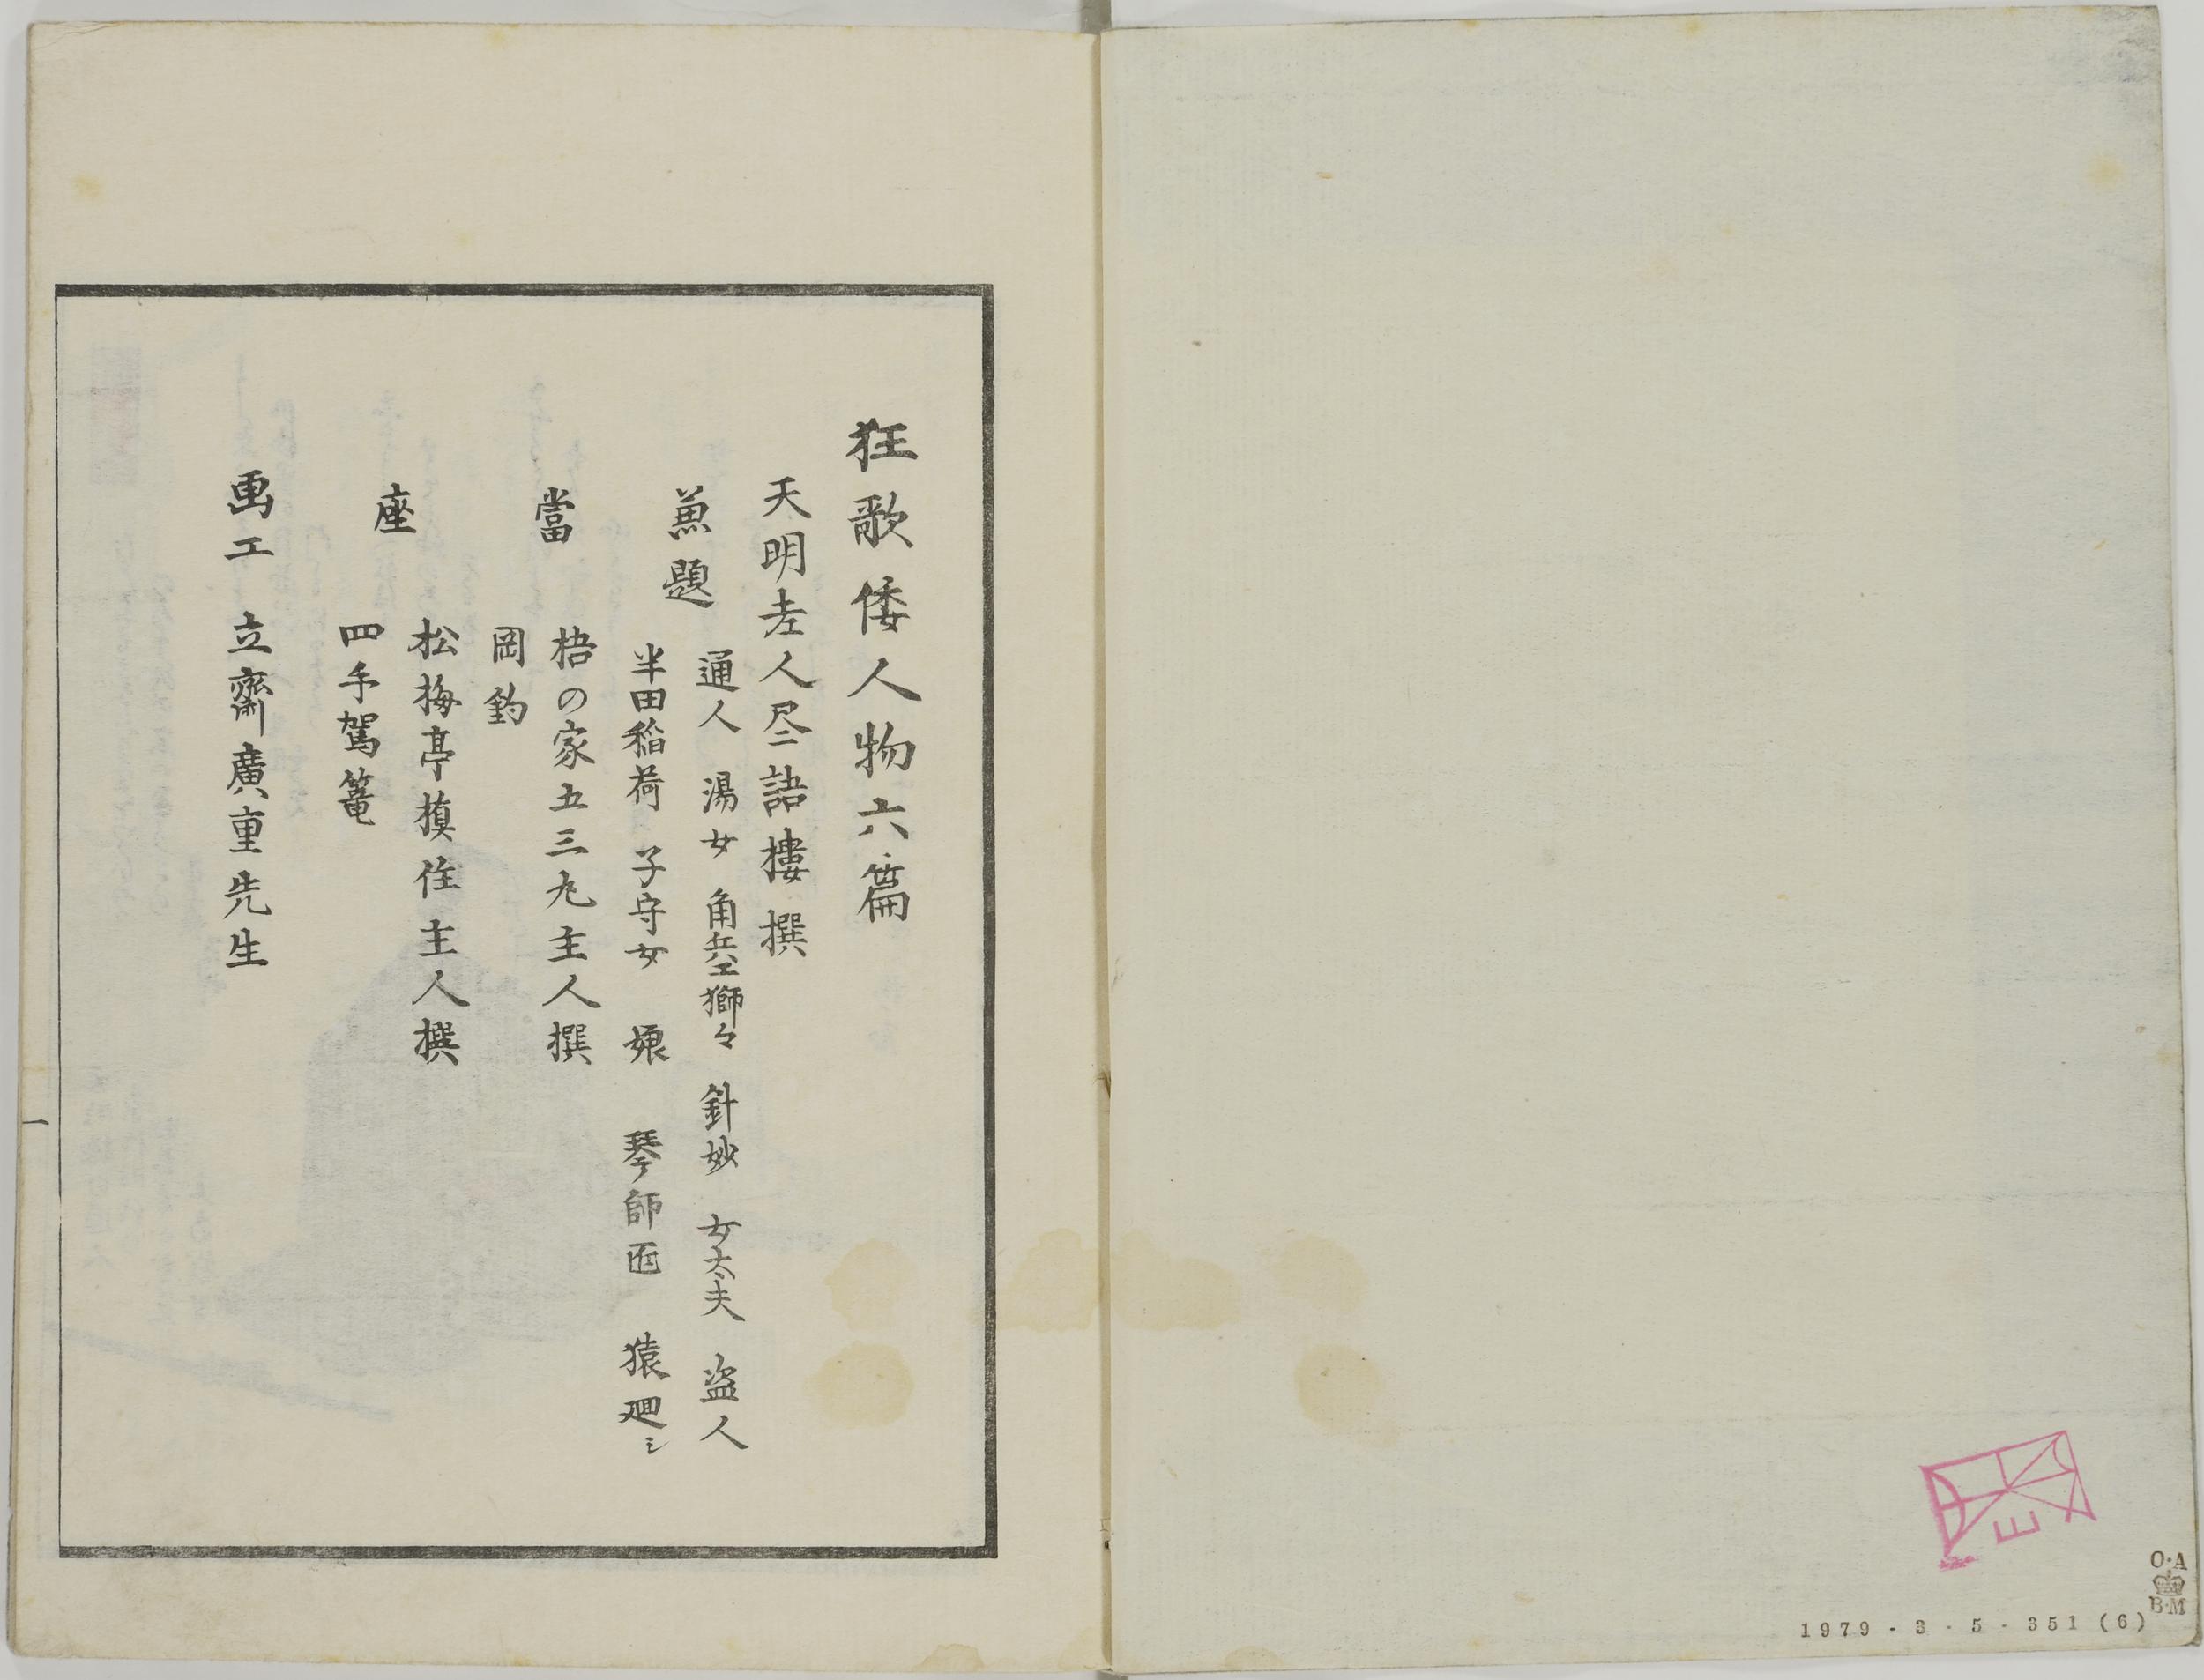 狂歌倭人物六篇
天明老人尽語樓撰
兼題
通人 湯女 角兵エ獅々 針妙 女太夫 盗人
半田稲荷 子守女 娘 琴師匠 猿廻シ
當座
梧の家五三丸主人撰
岡釣
松梅亭槙住主人撰
四手駕篭
画工 立齋廣重先生
一
O·A
B·M
1979-3-5-351(6)